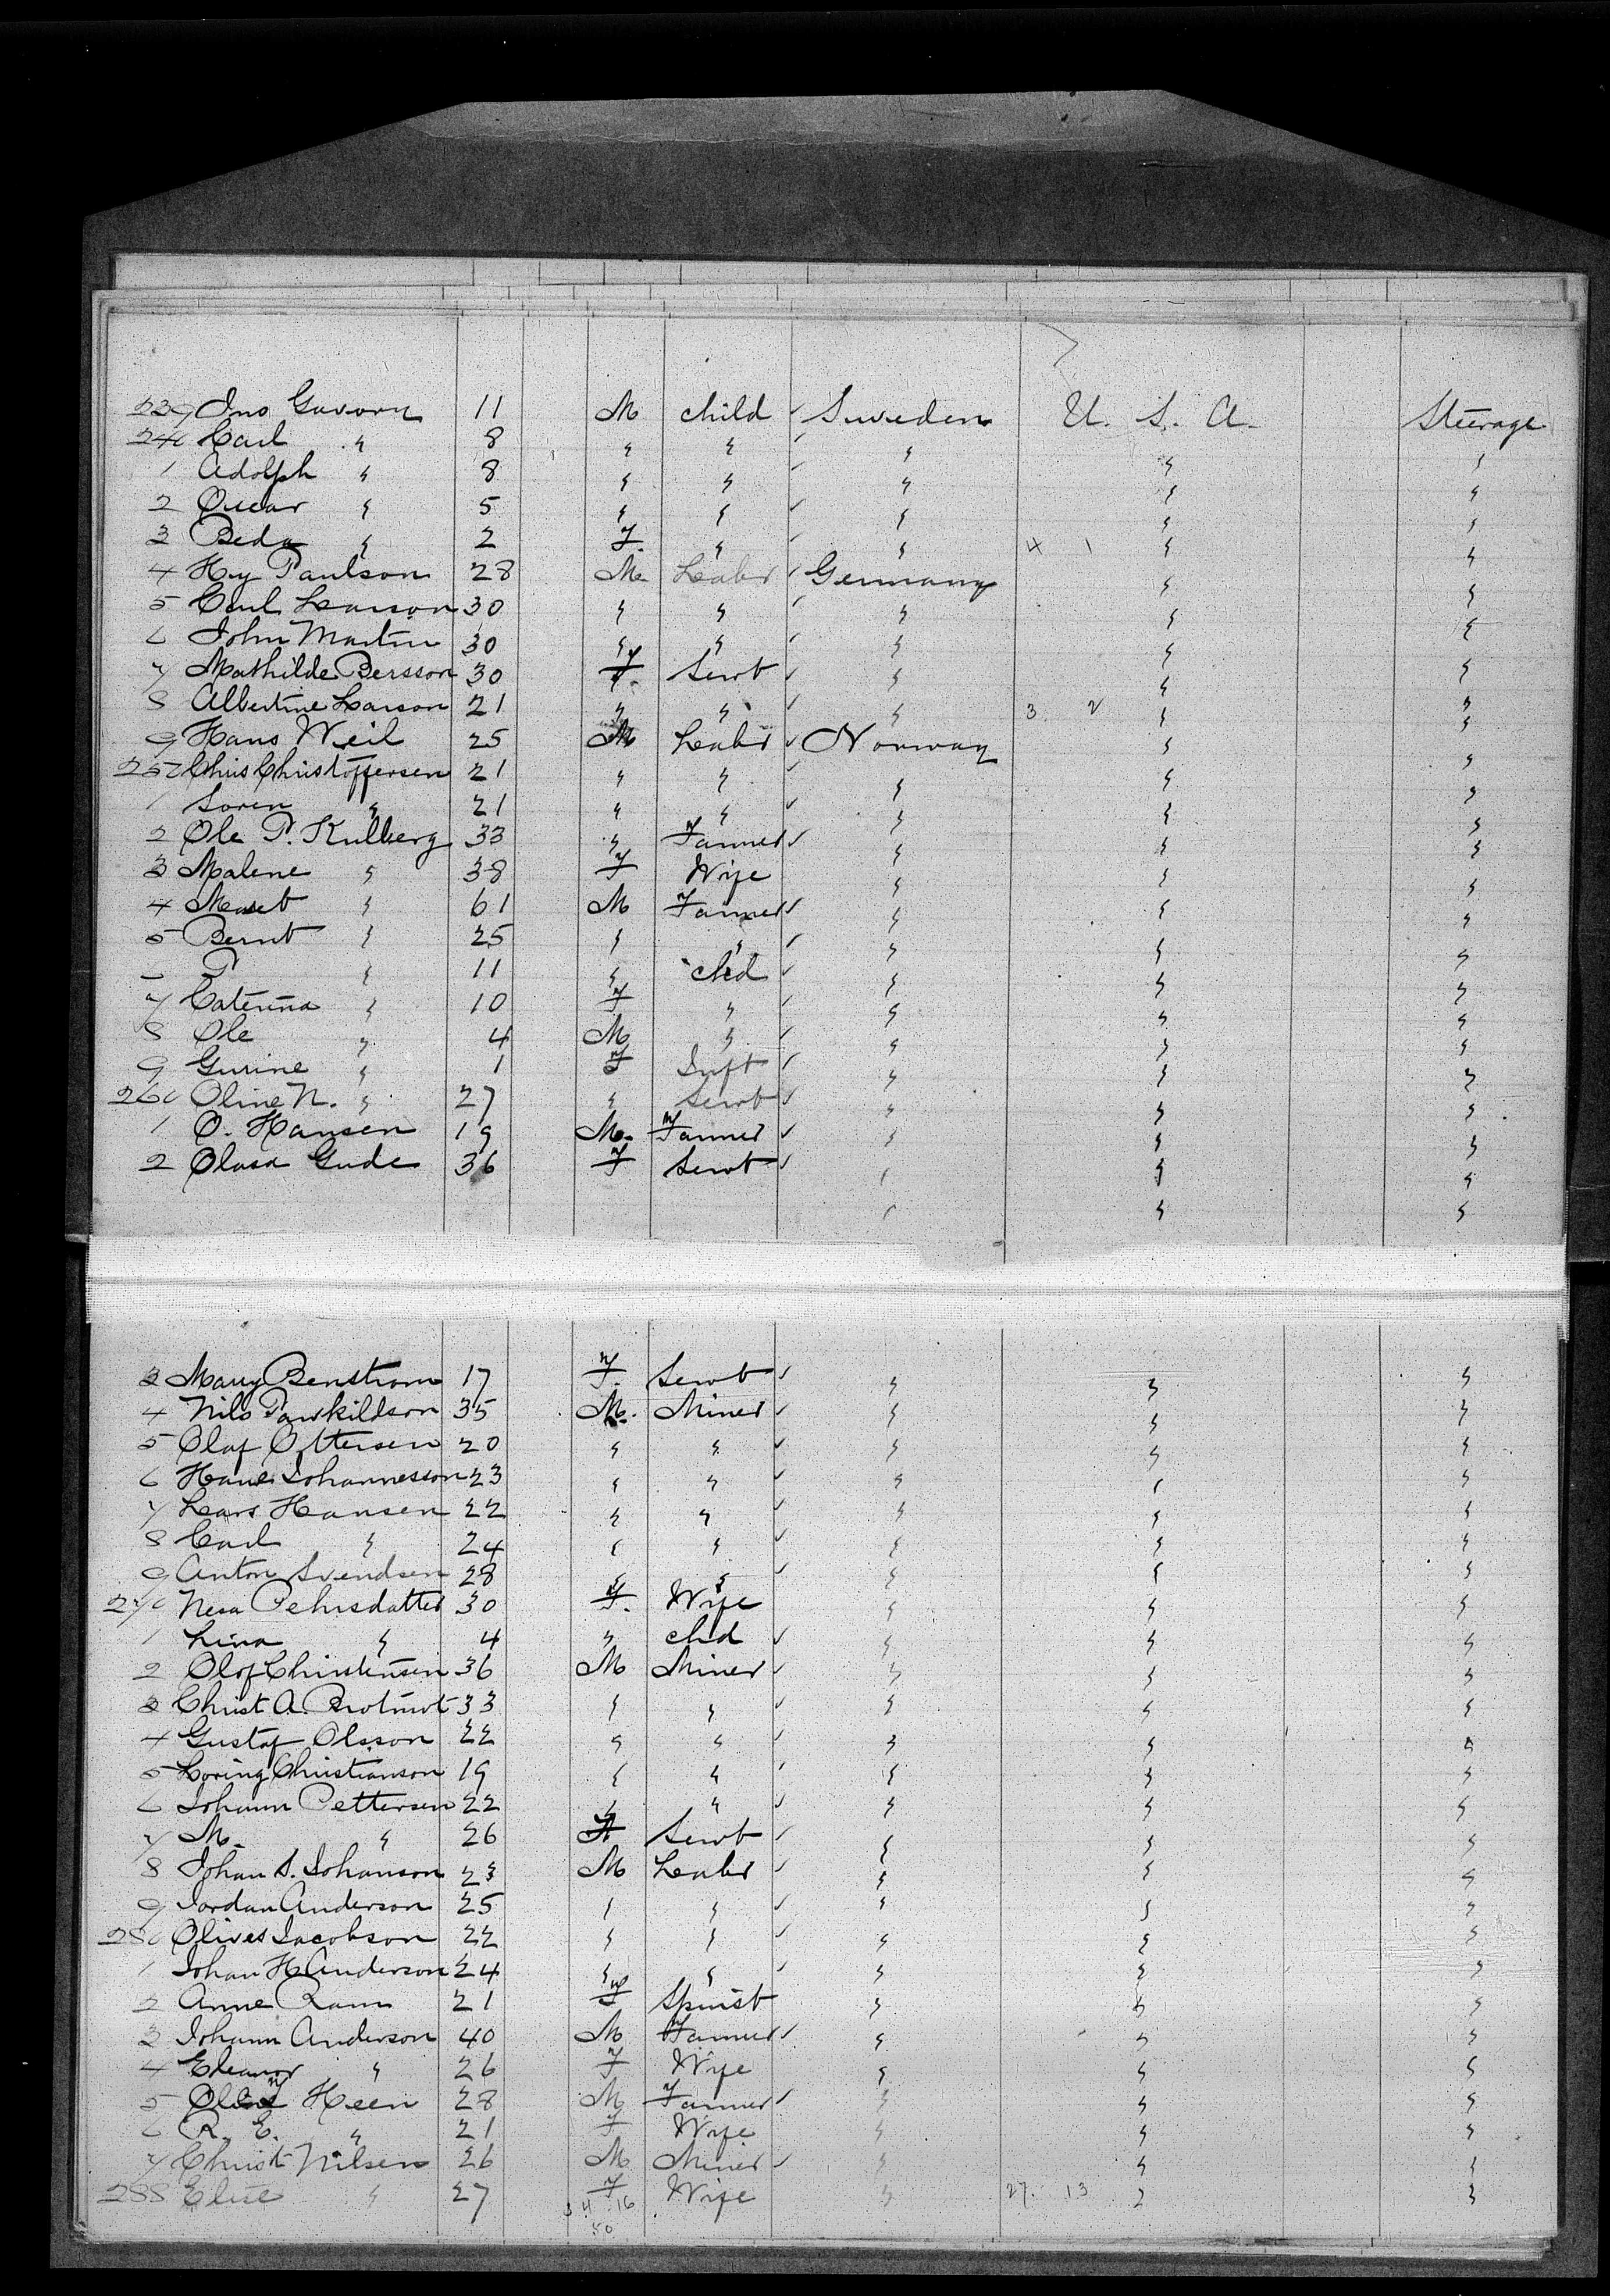 239 Ino Gavorn 11 M child ✓ Sweden U. S. A. Steerage
240 Carl " 8 " " " " "
1 Adolph " 8 " " " " "
2 Oscar " 5 " " " " "
3 Beda " 2 F. " " 4 1 " "
4 Hy Paulson 28 M. Labr ✓ Germany " "
5 Carl Larson 30 " " " " "
6 John Martin 30 " " " " "
7 Mathilde Persson 30 F. Servt ✓ " " "
8 Albertine Larson 21 " " ✓ " 3. 2 " "
9 Hans Weil 25 M Labr ✓ Norway " "
250 Chris Christoffersen 21 " " ✓ " " "
1 Soren " 21 " " ✓ " " "
2 Ole P. Kulberg 33 " Farmer ✓ " " "
3 Malene " 38 F Wife " " "
4 " 61 M Farmer ✓ " " "
5 Bernt " 25 " " ✓ " " "
P " 11 " chd ✓ " " "
7 Caterina " 10 F " ✓ " " "
8 Ole " 4 M " ✓ " " "
9 Gurine " 1 F Inft ✓ " " "
260 Oline N. " 27 " Servt ✓ " " "
1 O. Hansen 19 M. Farmer ✓ " " "
2 Olava Gude 36 F Servt ✓ " " "
" " "
3 Mary Benstrom 17 F. Servt ✓ " " "
4 Nils Tawkildson 35 M. Miner ✓ " " "
5 Olaf Ottersen 20 " " ✓ " " "
6 Hans Johannesson 23 " " ✓ " " "
7 Lars Hansen 22 " " ✓ " " "
8 Carl " 24 " " ✓ " " "
9 Anton Svendsen 28 " " ✓ " " "
270 Nesa Pehrsdatter 30 F. Wife " " "
1 Lina " 4 " chd ✓ " " "
2 Olof Christensen 36 M Miner ✓ " " "
3 Christ A. 33 " " ✓ " " "
4 Gustaf Olsson 22 " " ✓ " " "
5 Loring Christianson 19 " " ✓ " " "
6 Johann Pettersen 22 " " ✓ " " "
7 M. " 26 F Servt ✓ " " "
8 Johan S. Johanson 23 M Labr ✓ " " "
9 Jordan Anderson 25 " " ✓ " " "
280 Oliver Jacobson 22 " " ✓ " " "
1 Johan H Anderson 24 " " ✓ " " "
2 Anne Ram 21 F Spinst " " "
3 Johann Anderson 40 M Farmer ✓ " " "
4 Eleanor " 26 F Wife " " "
5 Heen 28 M Farmer ✓ " " "
6 R. E. " 21 F Wife " " "
7 Christ Nilsen 26 M Miner ✓ " " "
288 Elise " 27 F Wife " 27. 13 " "
34 16
50